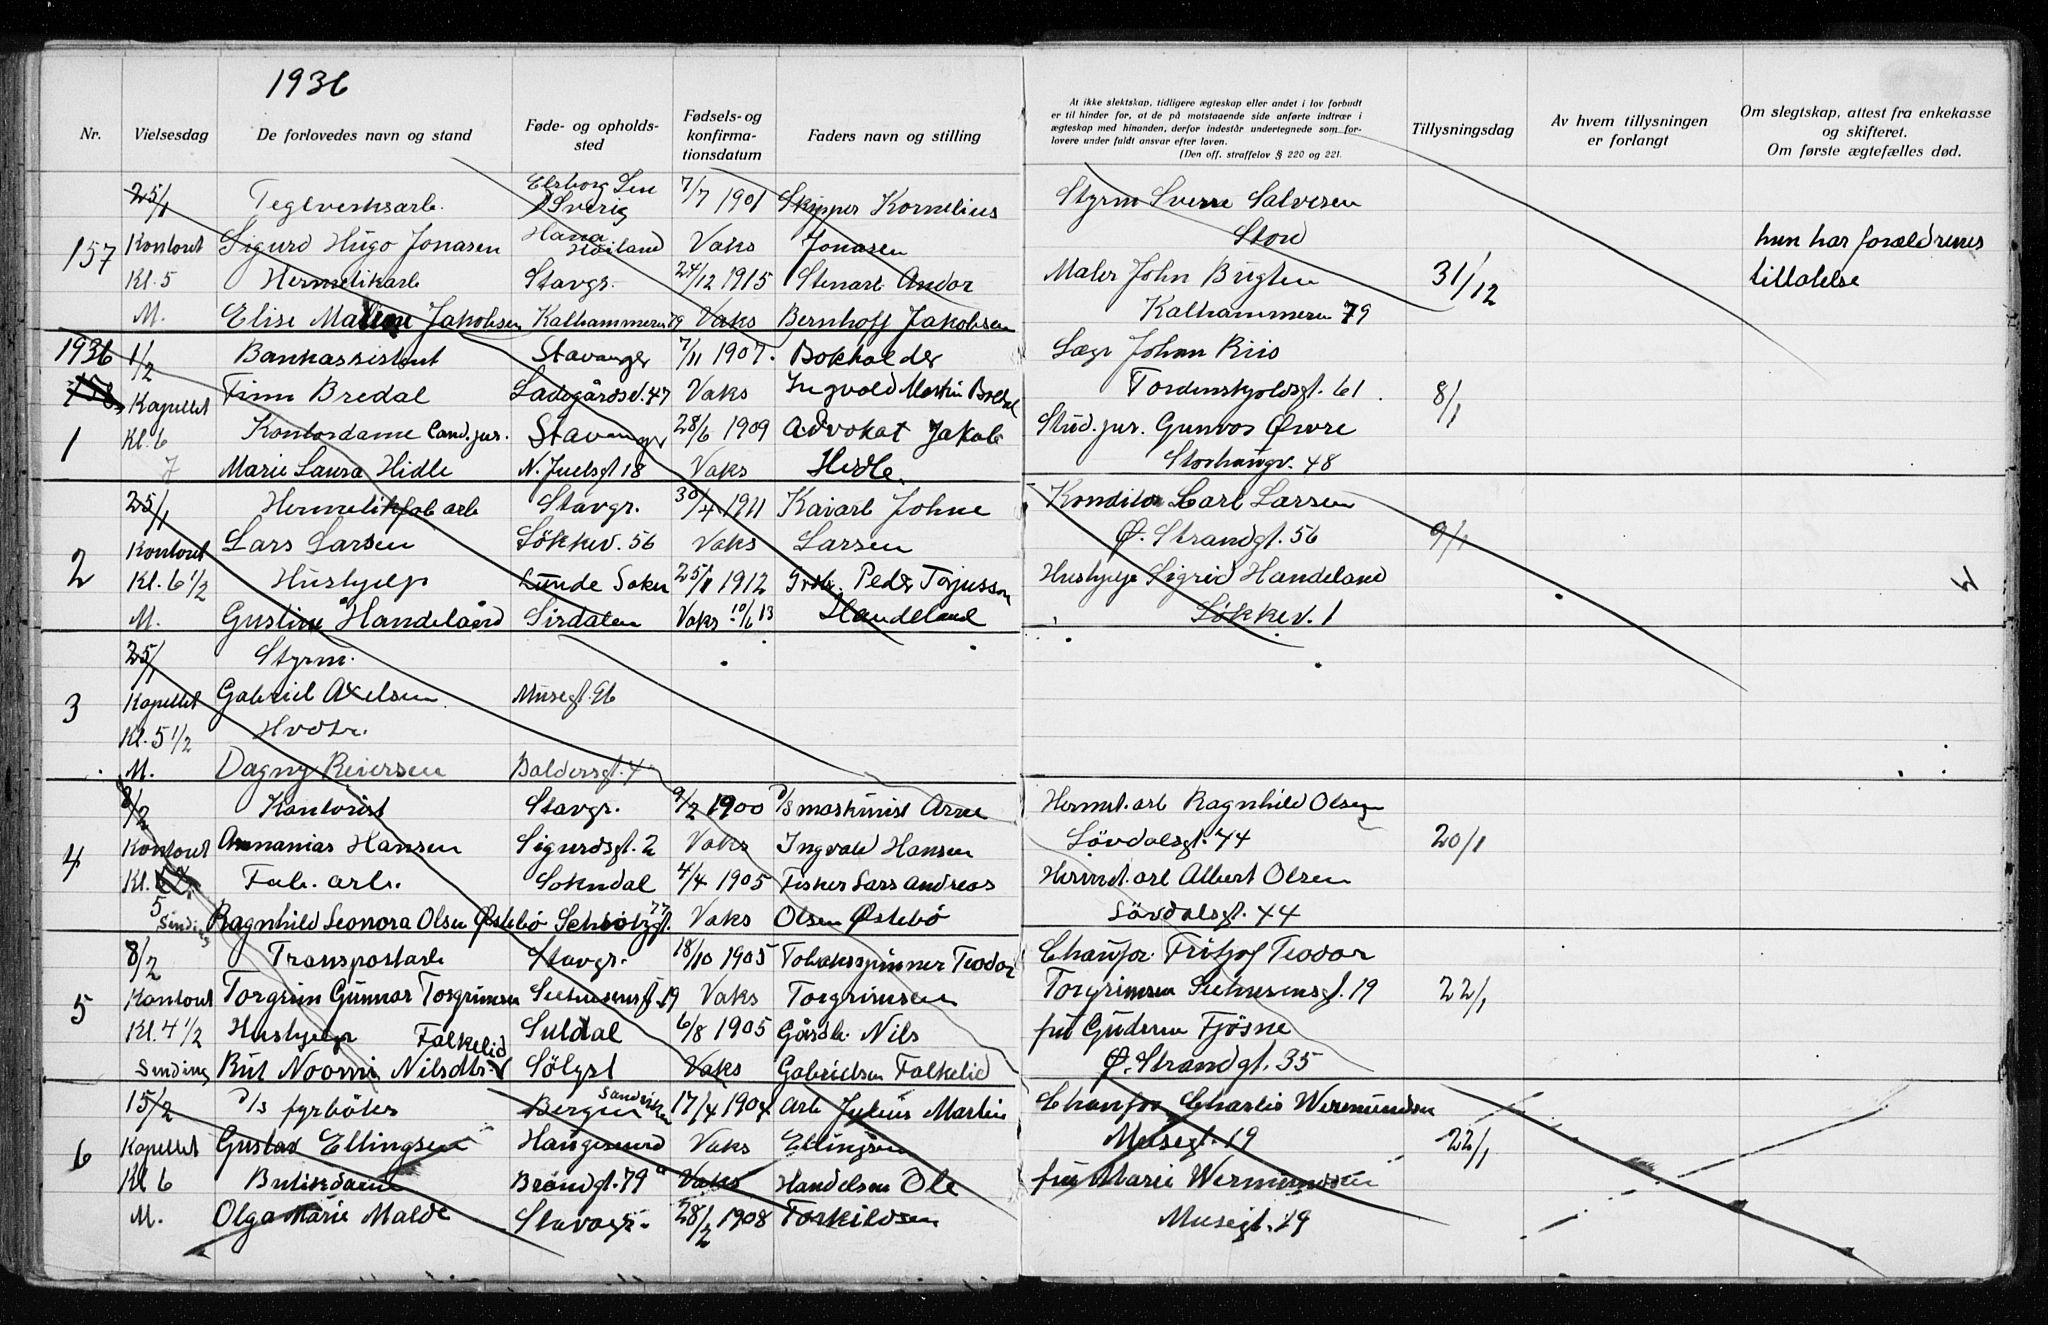 1936
Nr. Vielsesdag De forlovedes navn og stand Føde- og opholds-sted Fødsels- og konfirma-tionsdatum Faders navn og stilling
At ikke slektskap, tidligere ægteskap eller andet i lov forbudt
er til hinder for, at de på motstaaende side anførte indtrær i
ægteskap med hinanden, derfor indestår undertegnede som for-
lovere under fuldt ansvar efter loven.
(Den off. straffelov § 220 og 221.
Tillysningsdag Av hvem tillysningen er forlangt
Om slegtskap, attest fra enkekasse
og skifteret.
Om første ægtefælles død.
25/1 Teglverksarb. Sverig 7/7 1901 Skipper Kornelius Styrm Sverre Salvesen
157 Kontoret Sigurd Hugo Jonasen Hana Høiland Vaks Jonasen Stord hun har forældrenes
Kl. 5 Hermetikarb Stavgr. 24/12 1915 Stenarb. Andor Maler John Bugten 31/12 tillatelse
M. Elise Malene Jakobsen Kalhammeren 79 Vaks Bernhoff Jakobsen Kalhammeren 79
1936 1/2 Bankassistent Stavanger 7/11 1907. Bokholder Læge Johan Riis
158 Kapellet Finn Bredal Ladegårdsv. 47 Vaks Ingvald Martin Bredal Tordenskjoldsgt. 61. 8/1
1 Kl. 6 Kontordame Cand. jur. Stavanger 28/6 1909 Advokat Jakob Stud. jur. Gunvor Øvre
Marie Laura Hidle N. Juelsgt 18 Vaks Hidle. Storhaugv. 48
25/1 Hermetikfab arb Stavgr. 30/4 1911 Kaiarb Johne Konditor Carl Larsen
2 Kontoret Lars Larsen Løkkev. 56 Vaks Larsen Ø. Strandgt. 56 9/1
Kl. 6 1/2 Hushjelp Lunde Sokn 25/11 1912 Grbr. Peder Torjusson Hushjelp Sigrid Handeland
M. Gustine Handeland Sirdalen Vaks 10/6 13 Handeland Løkkev. 1
25/1 Styrm.
3 Kapellet Gabriel Axelsen Musegt. 96
Kl. 5 1/2 Hvdtr.
M. Dagny Reiersen Baldersgt. 4
8/2 Kontorist Stavgr. 9/2 1900 D/S maskinist Arne Hermet. arb Ragnhild Olsen
4 Kontoret Annanias Hansen Sigurdsgt. 2 Vaks Ingvald Hansen Løvdalsgt. 44 20/1
Kl. Fab. arb. Sokndal 4/4 1905 Fisker Lars Andreas Hermet. arb Albert Olsen
5 Sinding Ragnhild Leonora Olsen Østebø Vaks Olsen Østebø Løvdalsgt. 44
8/2 Transportarb Stavgr. 18/10 1905 Tobaksspinner Teodor Chauffør Fritjof Teodor
5 Kontoret Torgrim Gunnar Torgrimsen 19 Vaks Torgrimsen Torgrimsen 19 22/1
Kl. 4 1/2 Hushjelp Falkelid Suldal 6/8 1905 Gårdbr. Nils fru Gudrun Fjøsne
Sinding Rut Noomi Nilsdtr. Sølyst Vaks Gabrielsen Falkelid Ø. Strandgt. 35
15/2 D/S fyrbøter Bergen Sandviken 17/4 1904 Arb Julius Martin Chauffør Charles Wermundsen
6 Kapellet Gustav Ellingsen Haugesund Vaks Ellingsen Musegt. 19 22/1
Kl 6 Butikdame Brøndgt. 79 a Vaks Handelsm Ole fru Marie Wermundsen
M. Olga Marie Malde Stavgr. 28/2 1908 Torkildsen Musegt. 19